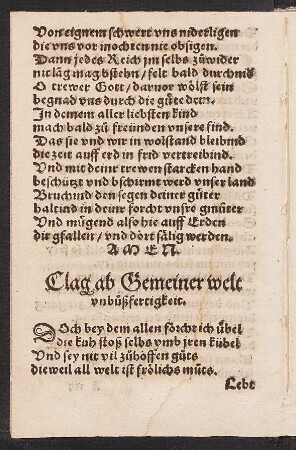 Von eignem schwert vns niderligen
die vns vor mochten nie obsigen.
Dann jedes Reich jm selbs zůwider
nit lāg mag bstehn / felt bald durchnid
O trewer Gott / daruor wölst sein
begnad vns durch die güte dein.
In deinem aller liebsten kind
mach bald zů freunden vnsere find.
Das sie vnd wir in wolstand bleibind
die zeit auff erd in frid vertreibind.
Vnd mit deinr trewen starcken hand
beschützt vnd bschirmt werd vnser land
Bruchind den segen deiner güter
haltind in deinr forcht vnsre gmüter
Vnd mügend also hie auff Erden
dir gfallen / vnd dort sälig werden.
AMEN.
Clag ab Gemeiner welt
vnbůßfertigkeit.
DOch bey dem allen förcht ich übel
die kuh stoß selbs vmb jren kübel
Vnd sey nit vil zůhoffen gůts
dieweil all welt ist frölichs můts.
Lebt